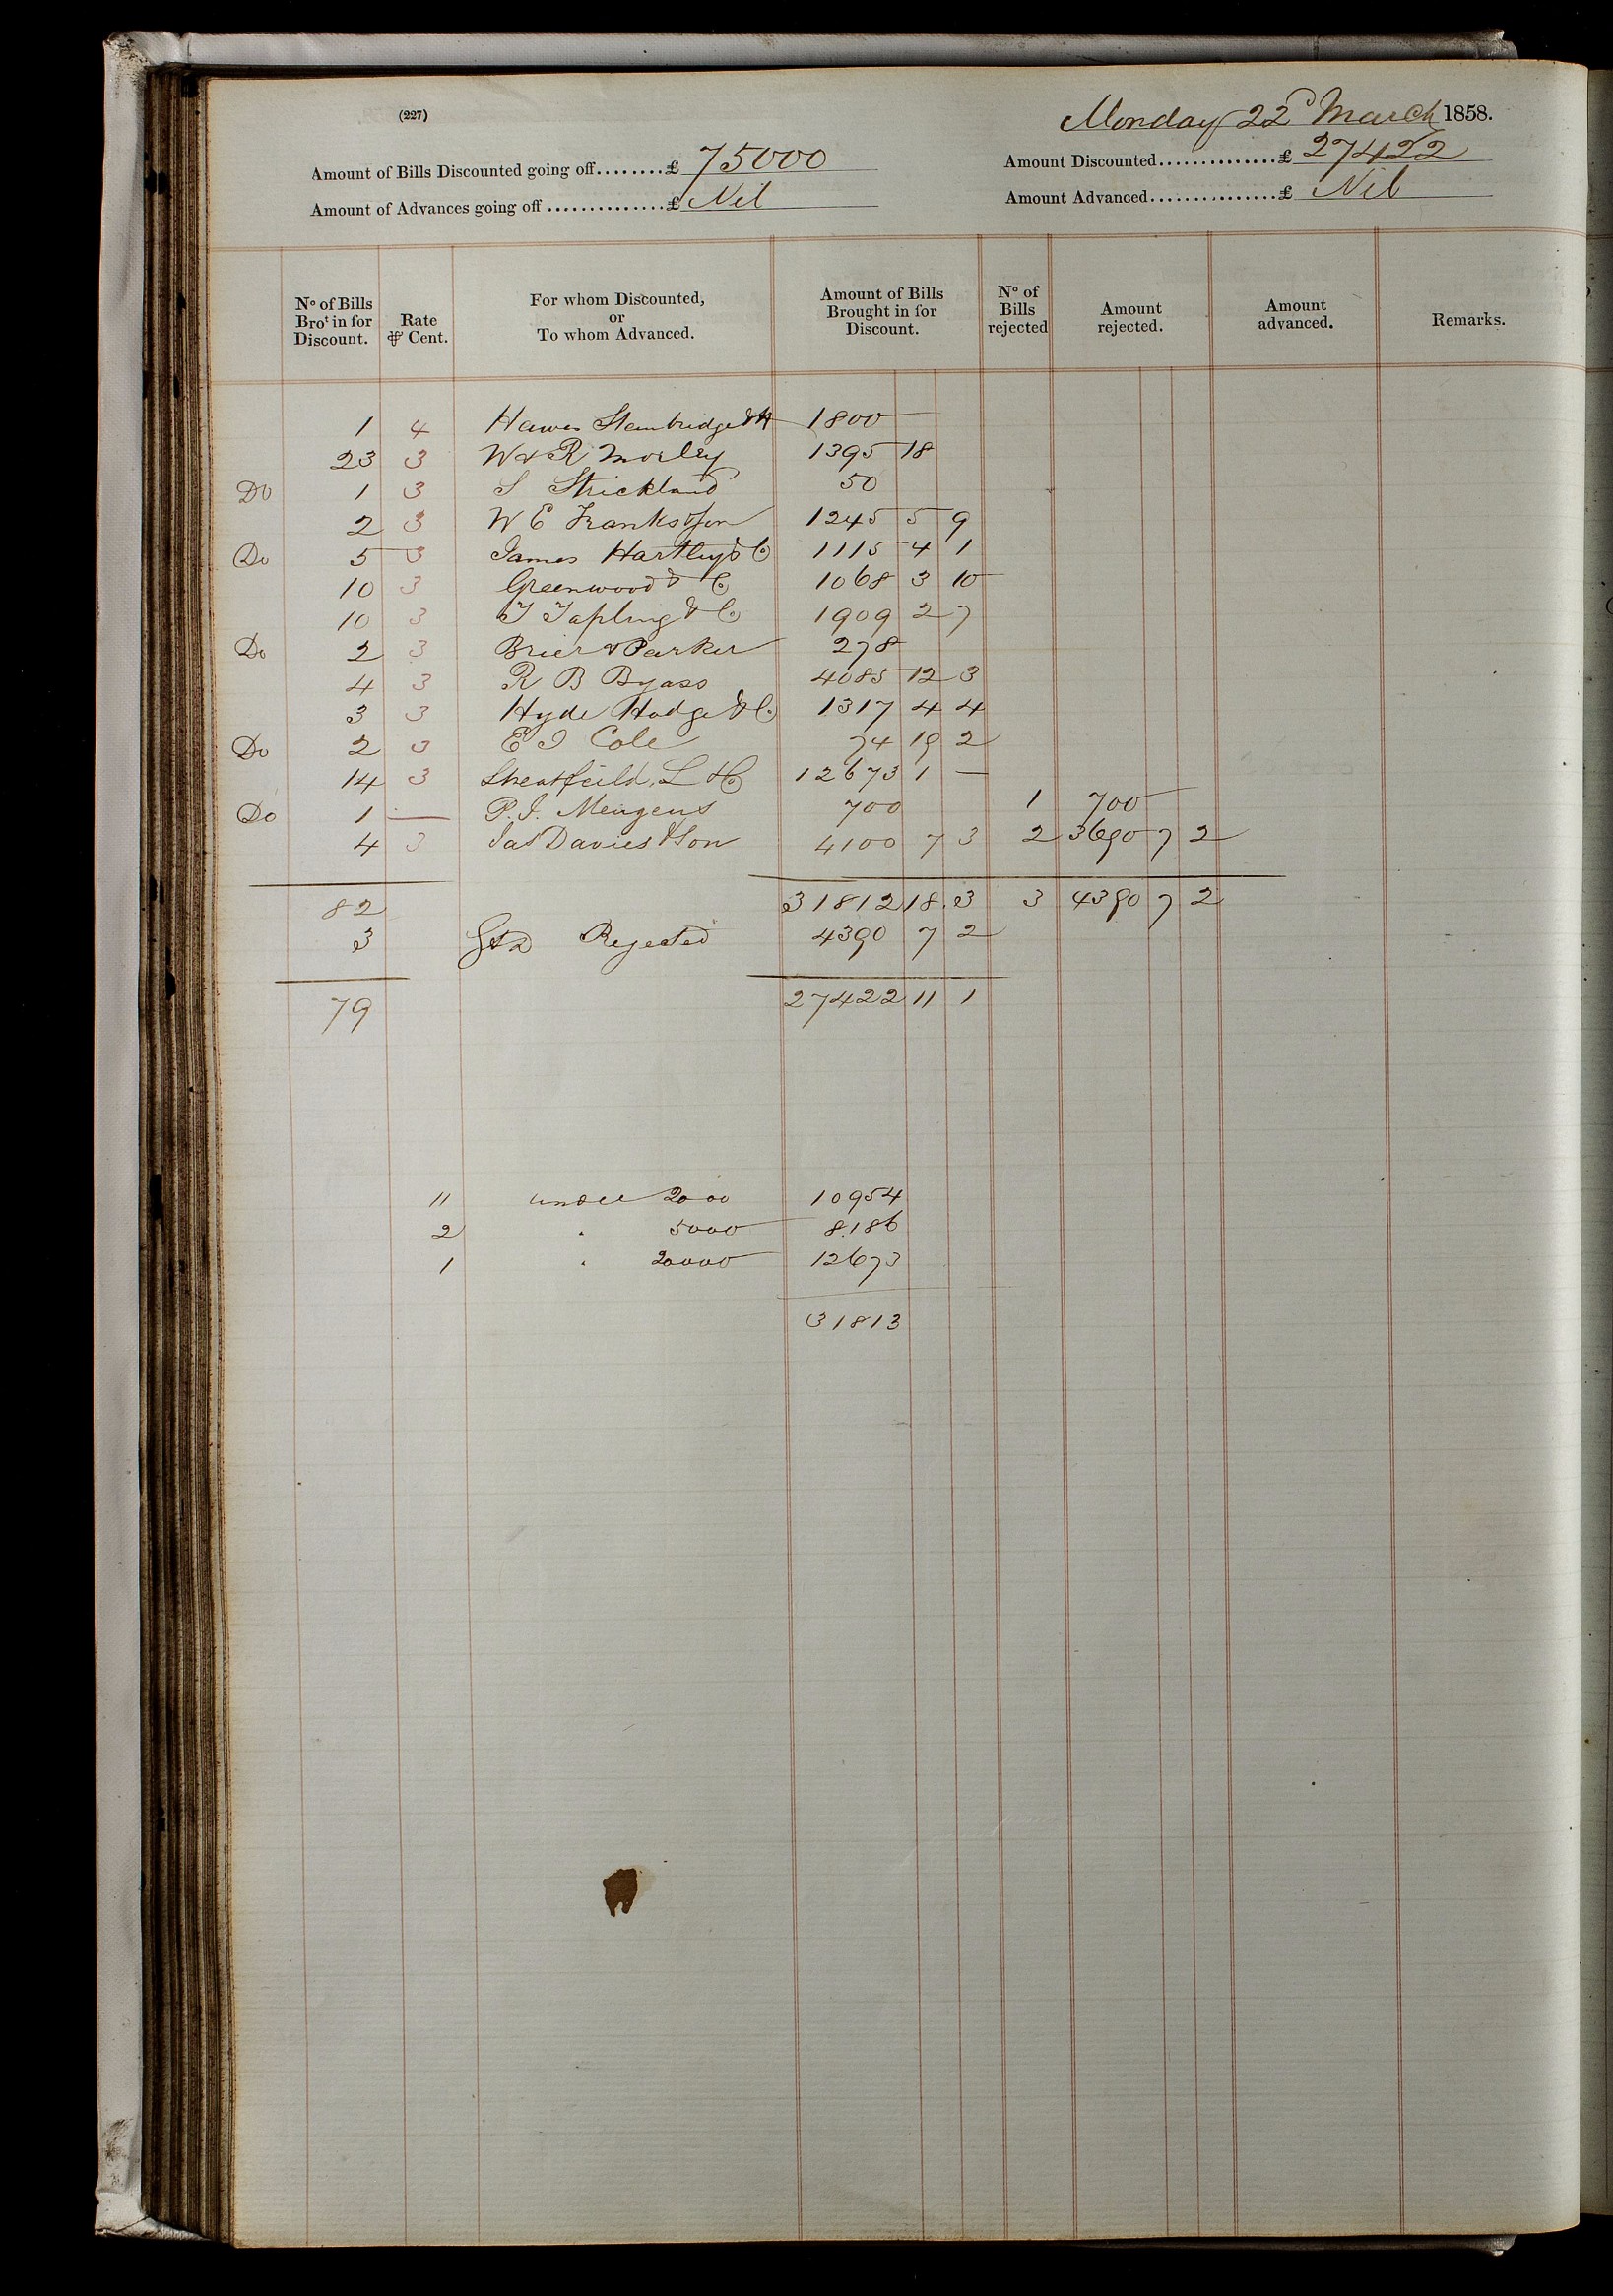 (227)
Monday 22d March 1858.
Amount of Bills Discounted going off........£ 75000
Amount Discounted...............£ 27422
Amount of Advances going off...............£ Nil
Amount Advanced................£ Nil
No of Bills Brot in for Discount. Rate ⅌ Cent. For whom Discounted, or To whom Advanced. Amount of Bills Brought in for Discount. No of Bills rejected Amount rejected. Amount advanced. Remarks.
1 4 Hawes Stambridge & H 1800
23 3 W & R Morley 1395 18
Do 1 3 S Strickland 50
2 3 W E Franks & Son 1245 5 9
Do 5 3 James Hartley & Co 1115 4 1
10 3 Greenwood & Co 1068 3 10
10 3 T Tapling & Co 1909 2 7
Do 2 3 Brier & Parker 278
4 3 R B Byass 4085 12 3
3 3 Hyde Hodge & Co 1317 4 4
Do 2 3 E I Cole 74 19 2
14 3 Sheatfeild, L & Co 12673 1 —
Do 1 — P. J. Meugens 700 1 700
4 3 Jas Davies & Son 4100 7 3 2 3690 7 2
82 31812 18 3 3 4390 7 2
3 Rejected 4390 7 2
79 27422 11 1
11 under 2000 10954
2 " 5000 8186
1 " 20000 12673
31813